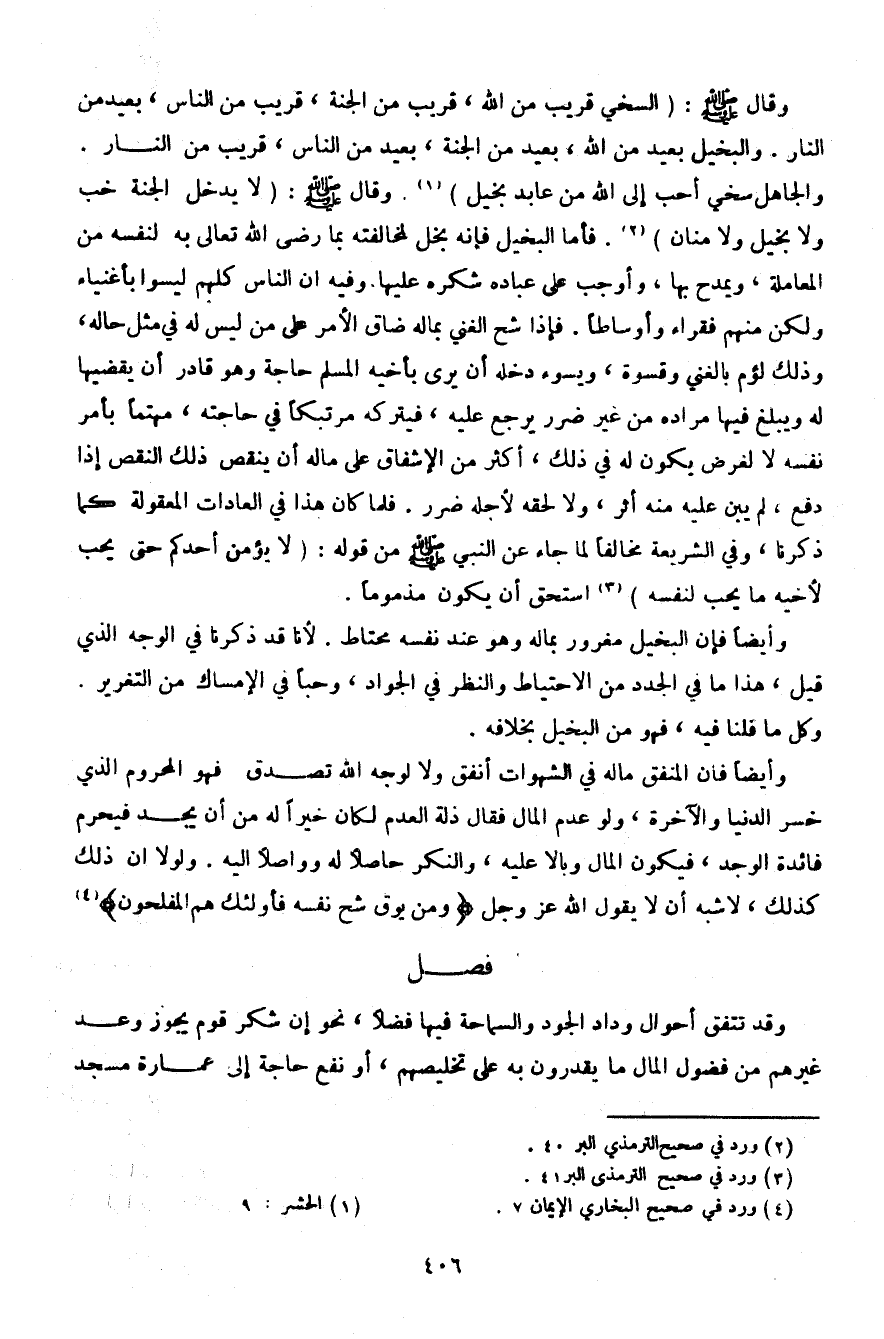 وقال ﷺ : ( السخي قريب من الله ، قريب من الجنة ، قريب من الناس ، بعيدمن
النار . والبخيل بعيد من الله ، بعيد من الجنة ، بعيد من الناس ، قريب من النـــار .
والجاهل سخي أحب إلى الله من عابد بخيل ) (١) . وقال ﷺ : ( لا يدخل الجنة خب
ولا بخيل ولا منان ) (٢) . فأما البخيل فإنه بخل لمخالفته بما رضى الله تعالى به لنفسه من
المعاملة ، ويمدح بها ، وأوجب على عباده شكره عليها. وفيه ان الناس كلهم ليسوا بأغنياء
ولكن منهم فقراء وأوساطاً . فإذا شح الغني بماله ضاق الأمر على من ليس له في مثل حاله،
وذلك لؤم بالغني وقسوة ، ويسوء دخله أن يرى بأخيه المسلم حاجة وهو قادر أن يقضيها
له ويبلغ فيها مراده من غير ضرر يرجع عليه ، فيتركه مرتبكاً في حاجته ، مهتماً بأمر
نفسه لا لغرض يكون له في ذلك ، أكثر من الإشفاق على ماله أن ينقص ذلك النقص إذا
دفع ، لم يبن عليه منه أثر ، ولا لحقه لأجله ضرر . فلما كان هذا في العادات المعقولة كما
ذكرنا ، وفي الشريعة مخالفاً لما جاء عن النبي ﷺ من قوله : ( لا يؤمن أحدكم حتى يحب
لأخيه ما يحب لنفسه ) (٣) استحق أن يكون مذموماً .
وأيضاً فإن البخيل مغرور بماله وهو عند نفسه محتاط . لأنا قد ذكرنا في الوجه الذي
قيل ، هذا ما في الجدد من الاحتياط والنظر في الجواد ، وحباً في الإمساك من التغرير .
وكل ما قلنا فيه ، فهو من البخيل بخلافه .
وأيضاً فان المنفق ماله في الشهوات أنفق ولا لوجه الله تصـــدق فهو المحروم الذي
خسر الدنيا والآخرة ، ولو عدم المال فقال ذلة العدم لكان خيراً له من أن يجـــد فيحرم
فائدة الوجد ، فيكون المال وبالا عليه ، والنكر حاصلاً له وواصلاً اليه . ولولا ان ذلك
كذلك ، لاشبه أن لا يقول الله عز وجل ﴿ ومن يوق شح نفسه فأولئك هم المفلحون﴾(٤)
فصـــل
وقد تتفق أحوال وداد الجود والسماحة فيها فضلاً ، نحو إن شكر قوم يجوز وعـــد
غيرهم من فضول المال ما يقدرون به على تخليصهم ، أو نفع حاجة إلى عمـــارة مسجد
(٢) ورد في صحيح الترمذي البر ٤٠ .
(٣) ورد في صحيح الترمذى البر ٤١ .
(٤) ورد في صحيح البخاري الإيمان ٧ . (١) الحشر : ٩
٤٠٦